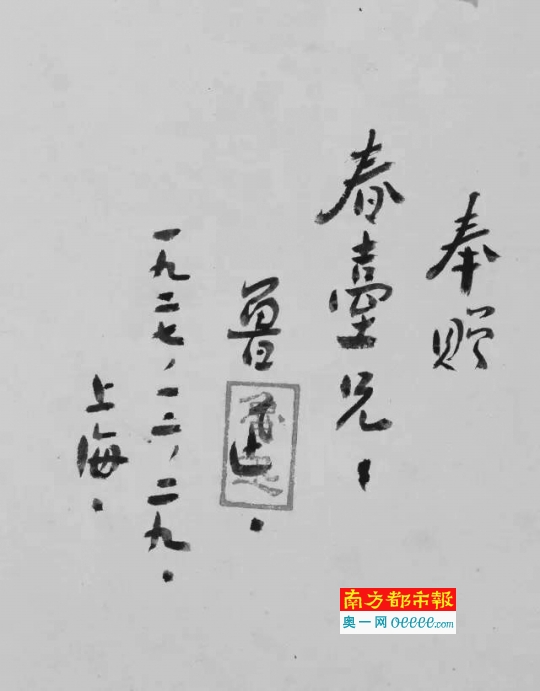 奉赠
春臺兄：
魯迅．
一九二七，一二，二九．
上海．
南方都市報
奥一网 oeeee.com